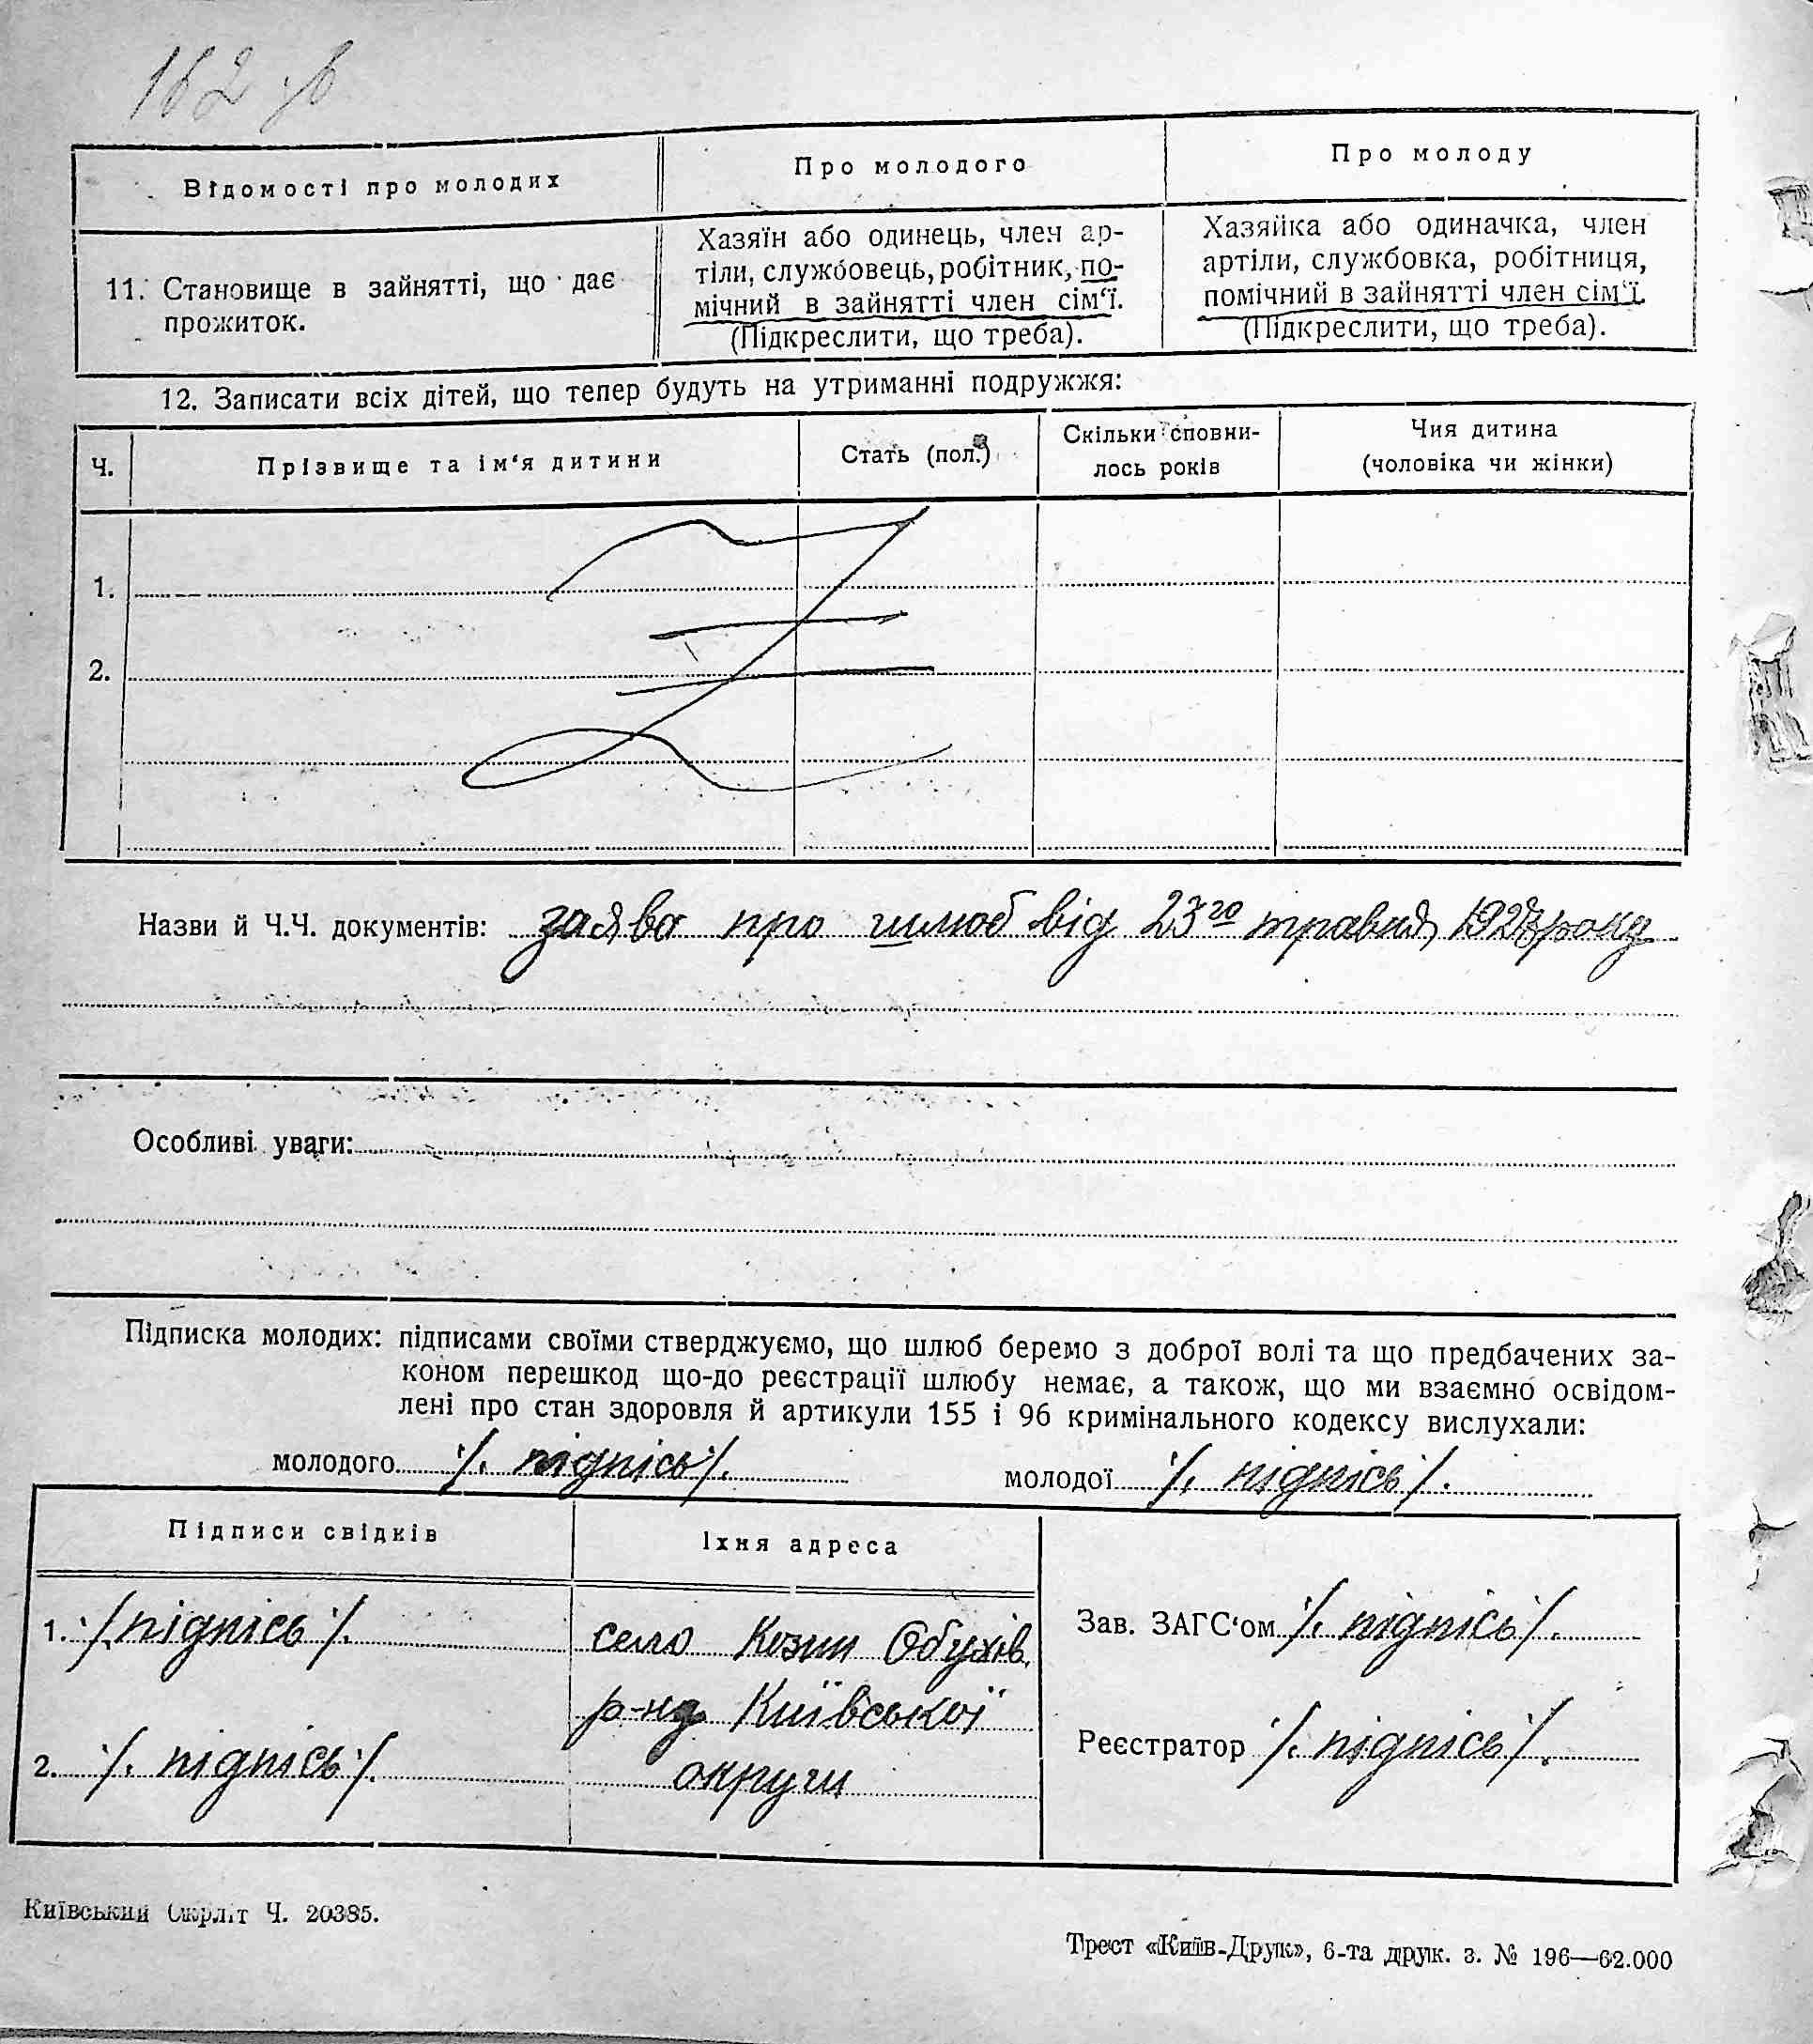 162 зв
Відомості про молодих
Про молодого
Про молоду
11. Становище в зайнятті, що дає
прожиток.
Хазяїн або одинець, член ар-
тіли, службовець, робітник, по-
мічний в зайнятті член сім‘ї.
(Підкреслити, що треба).
Хазяйка або одиначка, член
артіли, службовка, робітниця,
помічний в зайнятті член сім‘ї.
(Підкреслити, що треба).
12. Записати всіх дітей, що тепер будуть на утриманні подружжя:
Ч.
Прізвище та ім‘я дитини
Стать (пол.)
Скільки сповни-
лось років
Чия дитина
(чоловіка чи жінки)
1.
2.
Назви й Ч.Ч. документів: заява про шлюб від 23го травня 1927 року
Особливі уваги:
Підписка молодих: підписами своїми стверджуємо, що шлюб беремо з доброї волі та що предбачених за-
коном перешкод що-до реєстрації шлюбу немає, а також, що ми взаємно освідом-
лені про стан здоровля й артикули 155 і 96 кримінального кодексу вислухали:
молодого ./. підпісь ./. молодої ./. підпісь ./.
Підписи свідків
Їхня адреса
1. ./. підпісь ./.
2. ./. підпісь ./.
село Козин Обухів.
р-ну Київської
округи
Зав. ЗАГС‘ом ./. підпісь ./.
Реєстратор ./. підпісь ./.
Київський Окрліт Ч. 20385.
Трест «Київ-Друк», 6-та друк. з. № 196—62.000